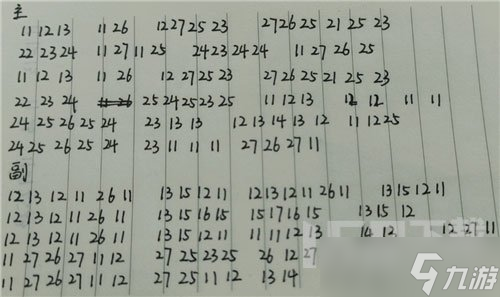 主
11 12 13 11 26 12 27 25 23 27 26 25 21 25 23
22 23 24 11 27 11 25 24 23 24 24 11 27 26 25
11 12 13 11 26 12 27 25 23 27 26 25 21 25 23
22 23 24 11 26 25 24 25 23 25 11 12 13 12 12 11 11
24 25 26 25 24 23 13 13 12 13 14 13 12 11 12 25
24 25 26 25 24 23 11 11 11 27 26 27 11
副
12 13 12 11 26 11 13 15 12 11 12 13 12 11 26 11 13 15 12 11
12 13 12 11 26 11 13 15 16 15 15 17 16 15 13 15 12
12 13 12 11 26 11 13 15 12 11 11 11 12 13 14 12 12 27 11
11 27 26 27 11 12 27 25 23 25 26 12 27
11 27 26 27 11 12 27 25 11 12 13 14
九游